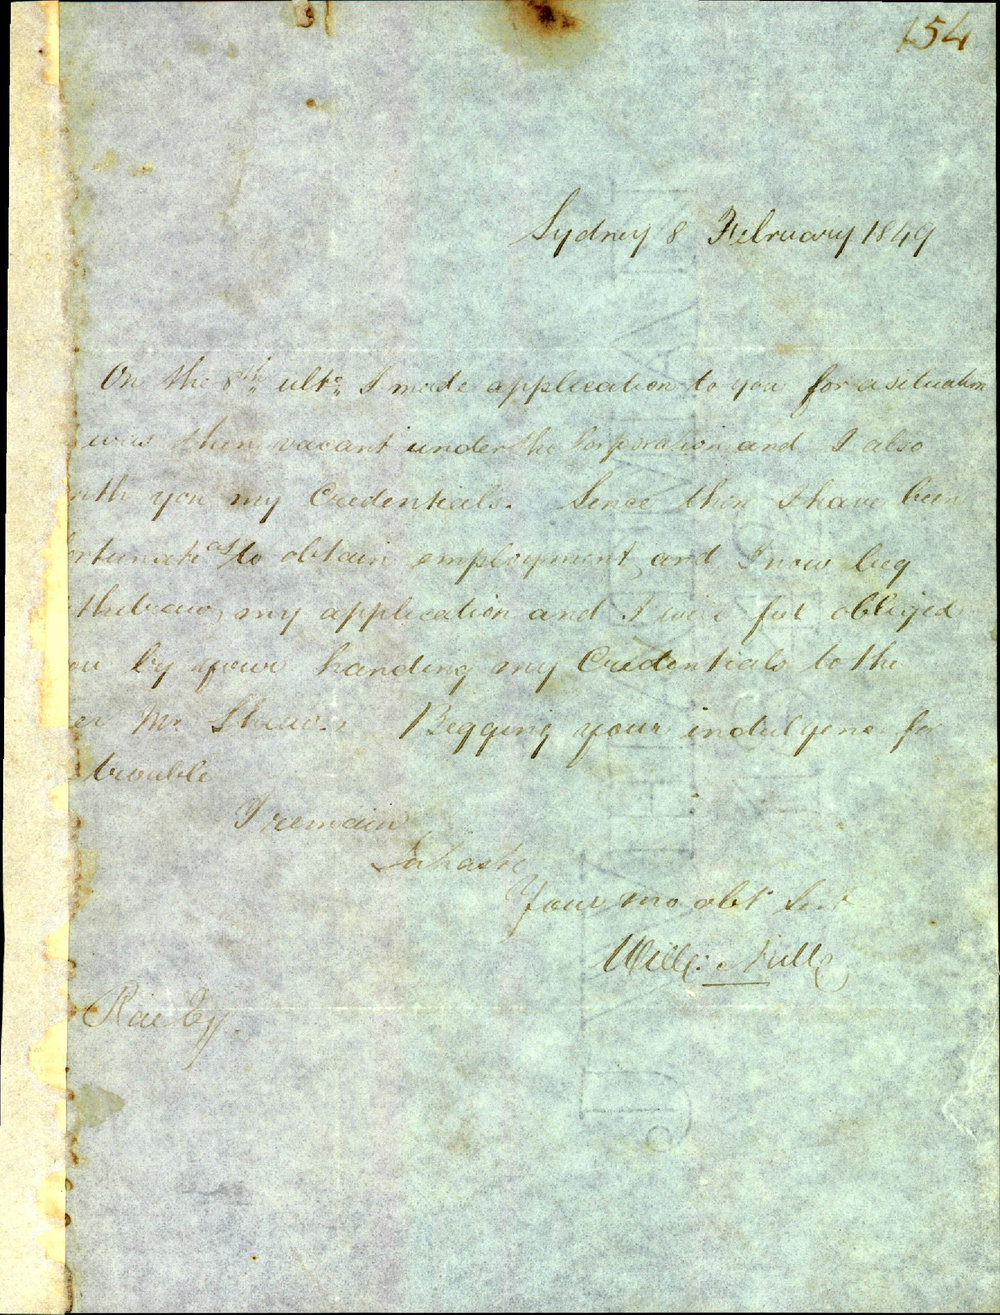 154
Sydney 8 February 1849
On the 8th ulto. I made application to you for a situation
was then vacant under the Corporation and I also
ith you my Credentials. Since then I have been
ortunate as to obtain employment, and I now beg
thdraw my application and I will feel obliged
ou by your handing my Credentials to the
er Mr. Begging your indulgence for
trouble
I remain
Your mo obt Sert
Willm.
Rae Esq.